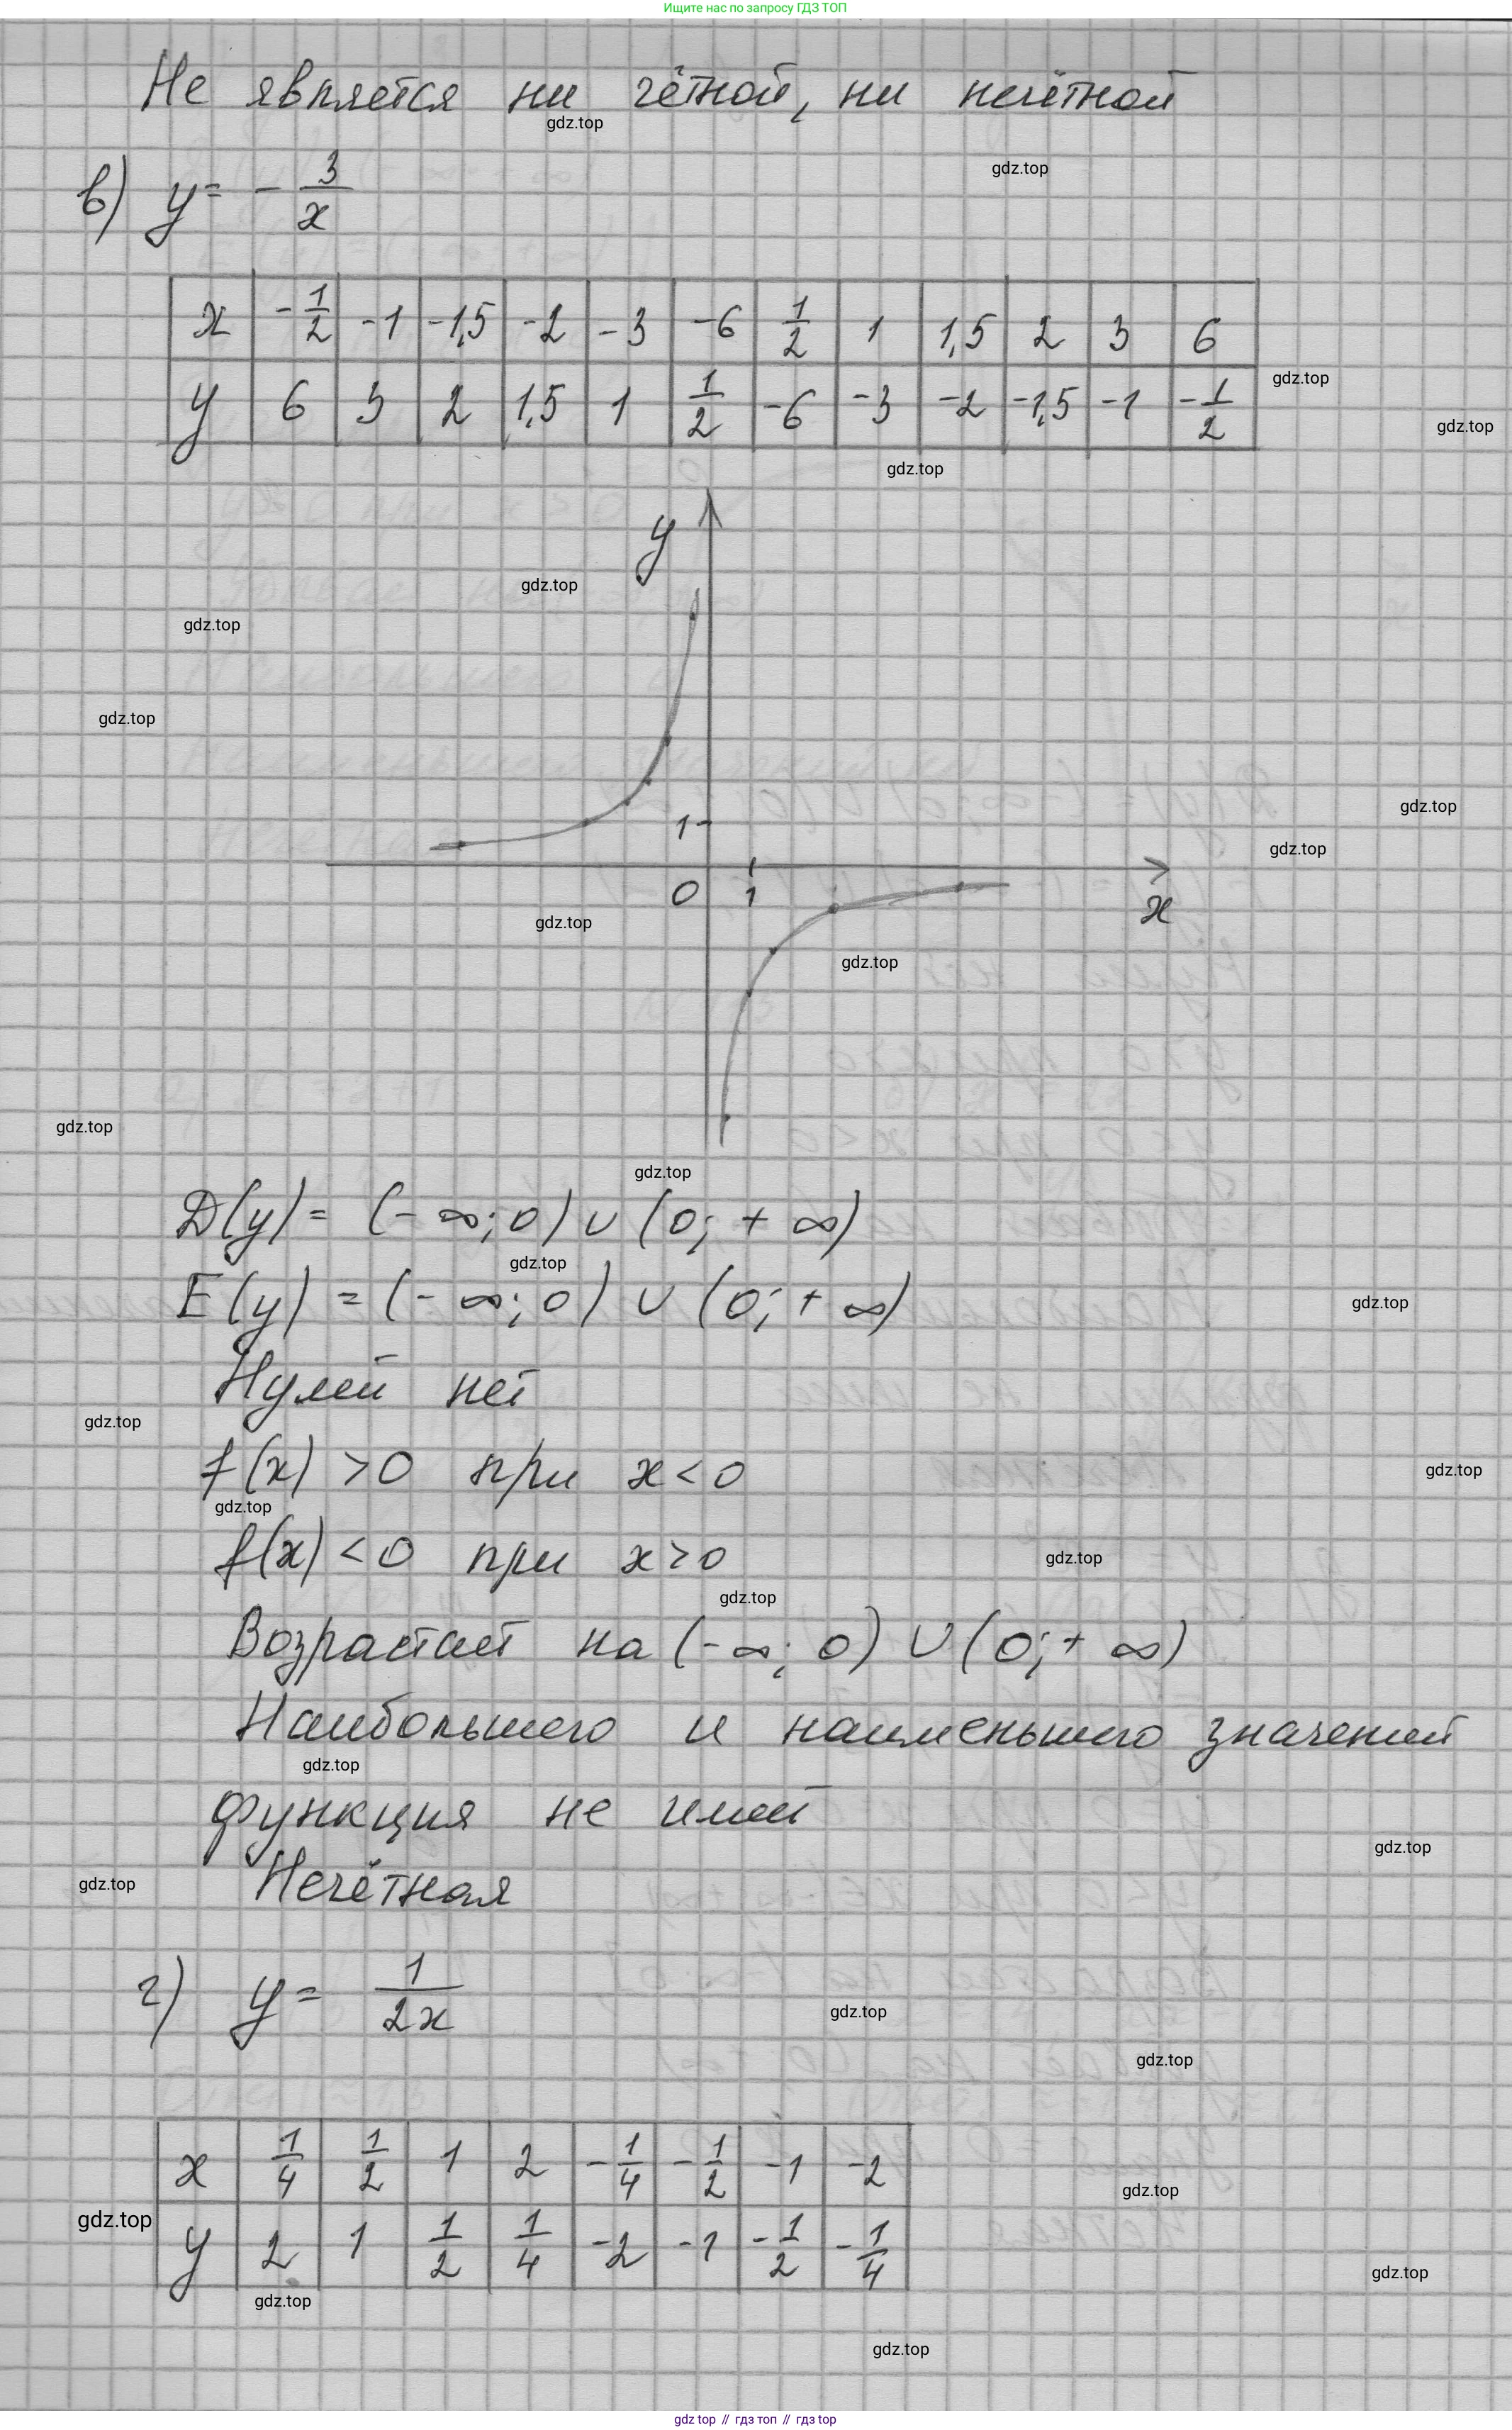 Ищите нас по запросу ГДЗ ТОП
Не является ни чётной, ни нечётной
gdz.top
gdz.top
в) y = - 3/x
x | -1/2 | -1 | -1,5 | -2 | -3 | -6 | 1/2 | 1 | 1,5 | 2 | 3 | 6
gdz.top
y | 6 | 3 | 2 | 1,5 | 1 | 1/2 | -6 | -3 | -2 | -1,5 | -1 | -1/2
gdz.top
gdz.top
y
gdz.top
gdz.top
gdz.top
gdz.top
1
gdz.top
0 1 x
gdz.top
gdz.top
gdz.top
gdz.top
D(y) = (- ∞; 0) ∪ (0; + ∞)
gdz.top
E(y) = (- ∞; 0) ∪ (0; + ∞)
gdz.top
Нулей нет
gdz.top
f(x) > 0 при x < 0
gdz.top
gdz.top
f(x) < 0 при x > 0
gdz.top
gdz.top
Возрастает на (- ∞; 0) ∪ (0; + ∞)
Наибольшего и наименьшего значений
gdz.top
функция не имеет
gdz.top
Нечётная
gdz.top
г) y = 1/2x
gdz.top
gdz.top
x | 1/4 | 1/2 | 1 | 2 | -1/4 | -1/2 | -1 | -2
gdz.top
gdz.top
y | 2 | 1 | 1/2 | 1/4 | -2 | -1 | -1/2 | -1/4
gdz.top
gdz.top
gdz.top
gdz top // гдз топ // гдз top